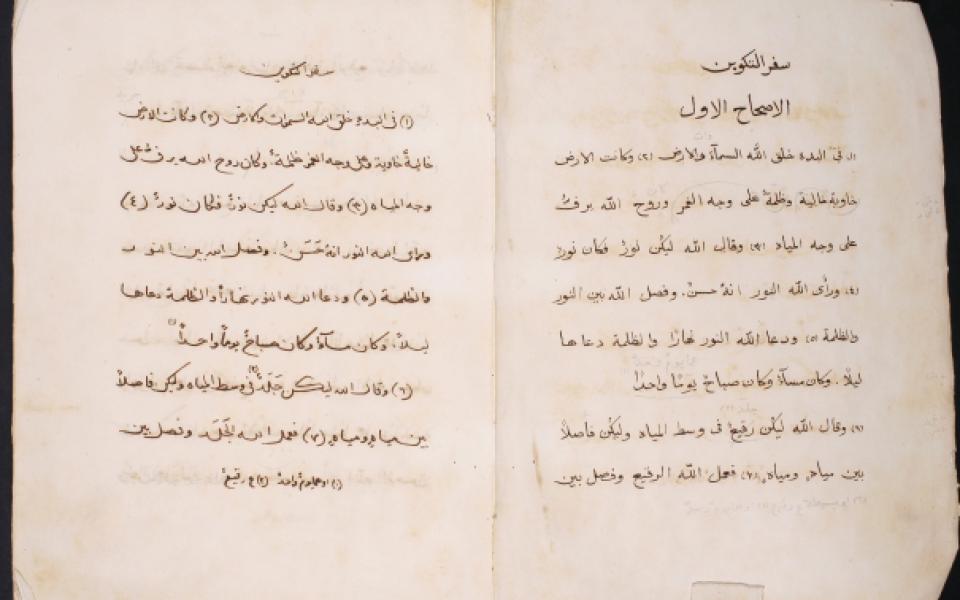 سفر التكوين
الاصحاح الاول
(١) في البدء خلق اللّه السمآء والارض (٢) وكانت الارض
خاوية خالية وظلمة على وجه الغمر وروح اللّه يرفّ
على وجه المياه (٣) وقال اللّه ليكن نورٌ فكان نورٌ
(٤) ورأى اللّه النور انهُ حسنٌ. وفصل اللّه بين النور
والظلمة (٥) ودعا اللّه النور نهارًا والظلمة دعاها
ليلًا. وكان مسآءٌ وكان صباحٌ يومًا واحدًا
(٦) وقال اللّه ليكن رقيعٌ في وسط المياه وليكن فاصلًا
بين مياهٍ ومياهٍ (٧) فعمل اللّه الرقيع وفصل بين
سفر التكوين
(١) في البدء خلق الله السموات وكارض (٢) وكانت الارض
خاليةً خاوية وعلى وجه الغمر ظلمةٌ وكان روح الله يرفّ على
وجه المياه (٣) وقال الله ليكن نورٌ فكان نورٌ (٤)
ورأى الله النور انهُ حَسَنٌ. وفصل الله بين النور
والظلمة (٥) ودعا الله النور نهارًا والظلمة دعاها
ليلًا. وكان مسآءٌ وكان صباحٌ يومًا واحدًا (١)
(٦) وقال الله ليكن جَلَدٌ (٢) في وسط المياه وليكن فاصلًا
بين مياهٍ ومياهٍ (٧) فعمل الله الجَلَد وفصل بين
(١) يومٌ واحدٌ (٢) ع رقيعٌ